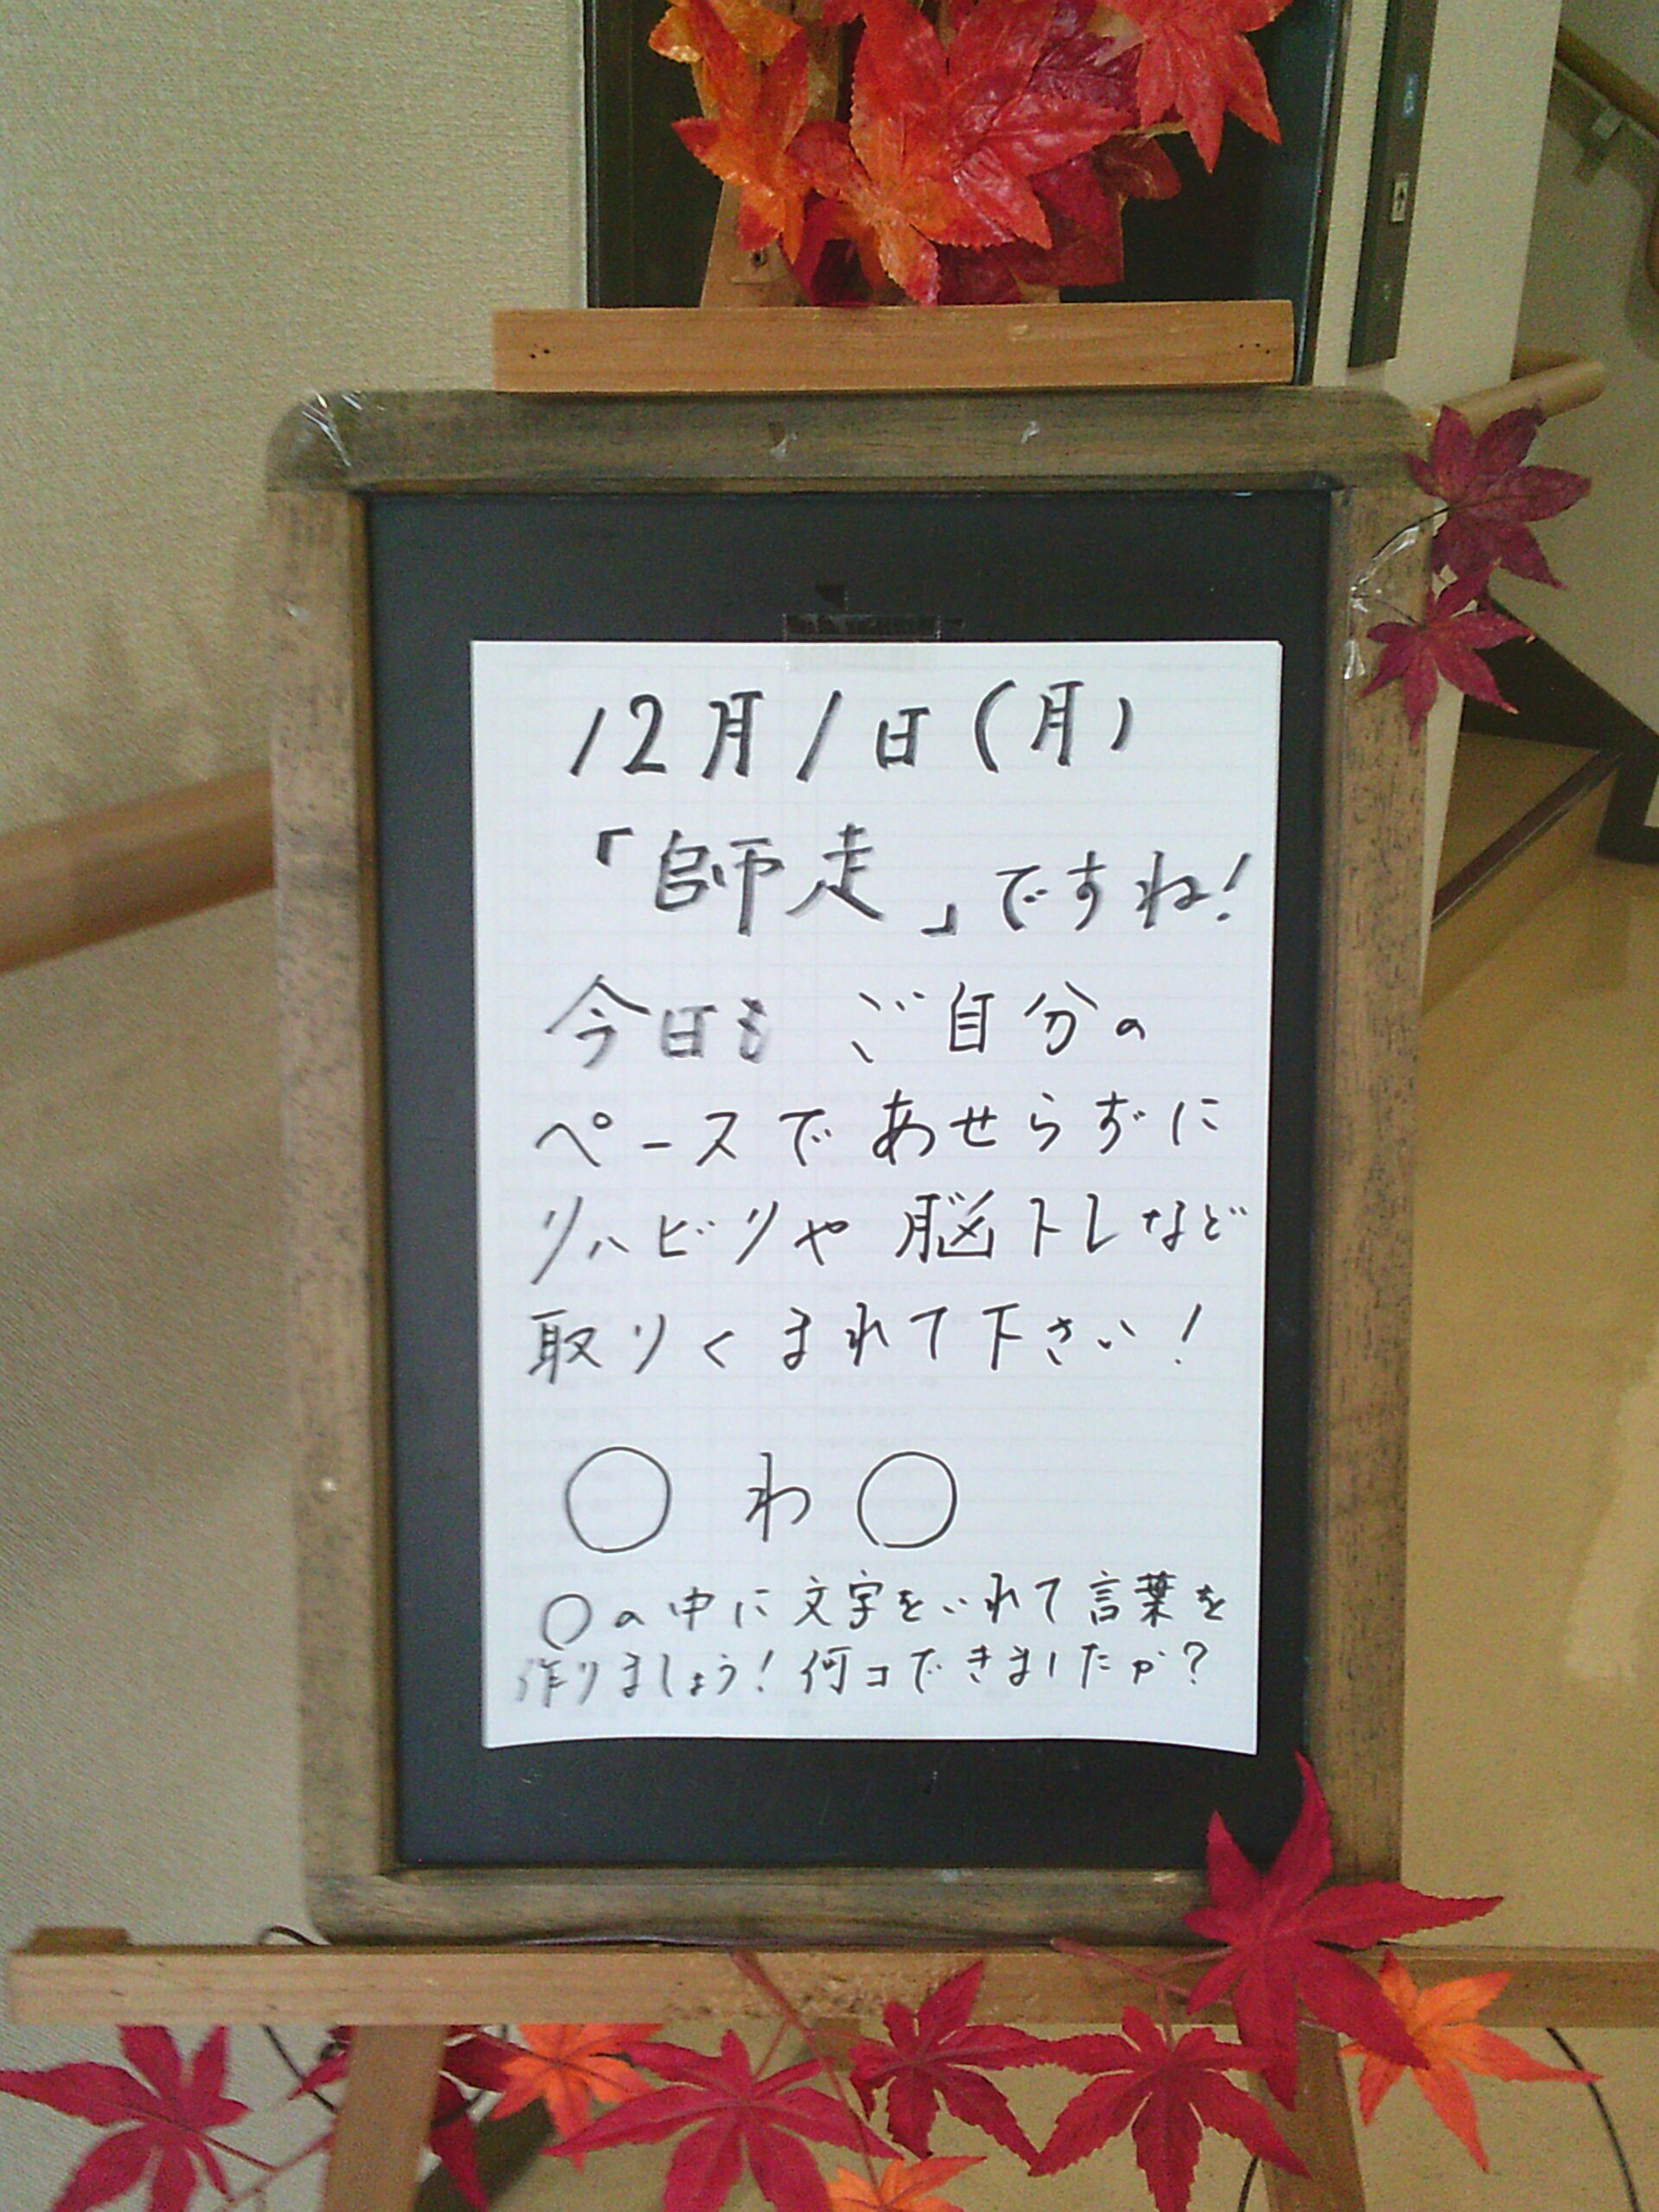 12月1日(月)
「師走」ですね!
今日も ご自分の
ペースで あせらずに
リハビリや 脳トレなど
取りくまれて下さい!
○ わ ○
○の中に文字をいれて言葉を
作りましょう!何コできましたか?